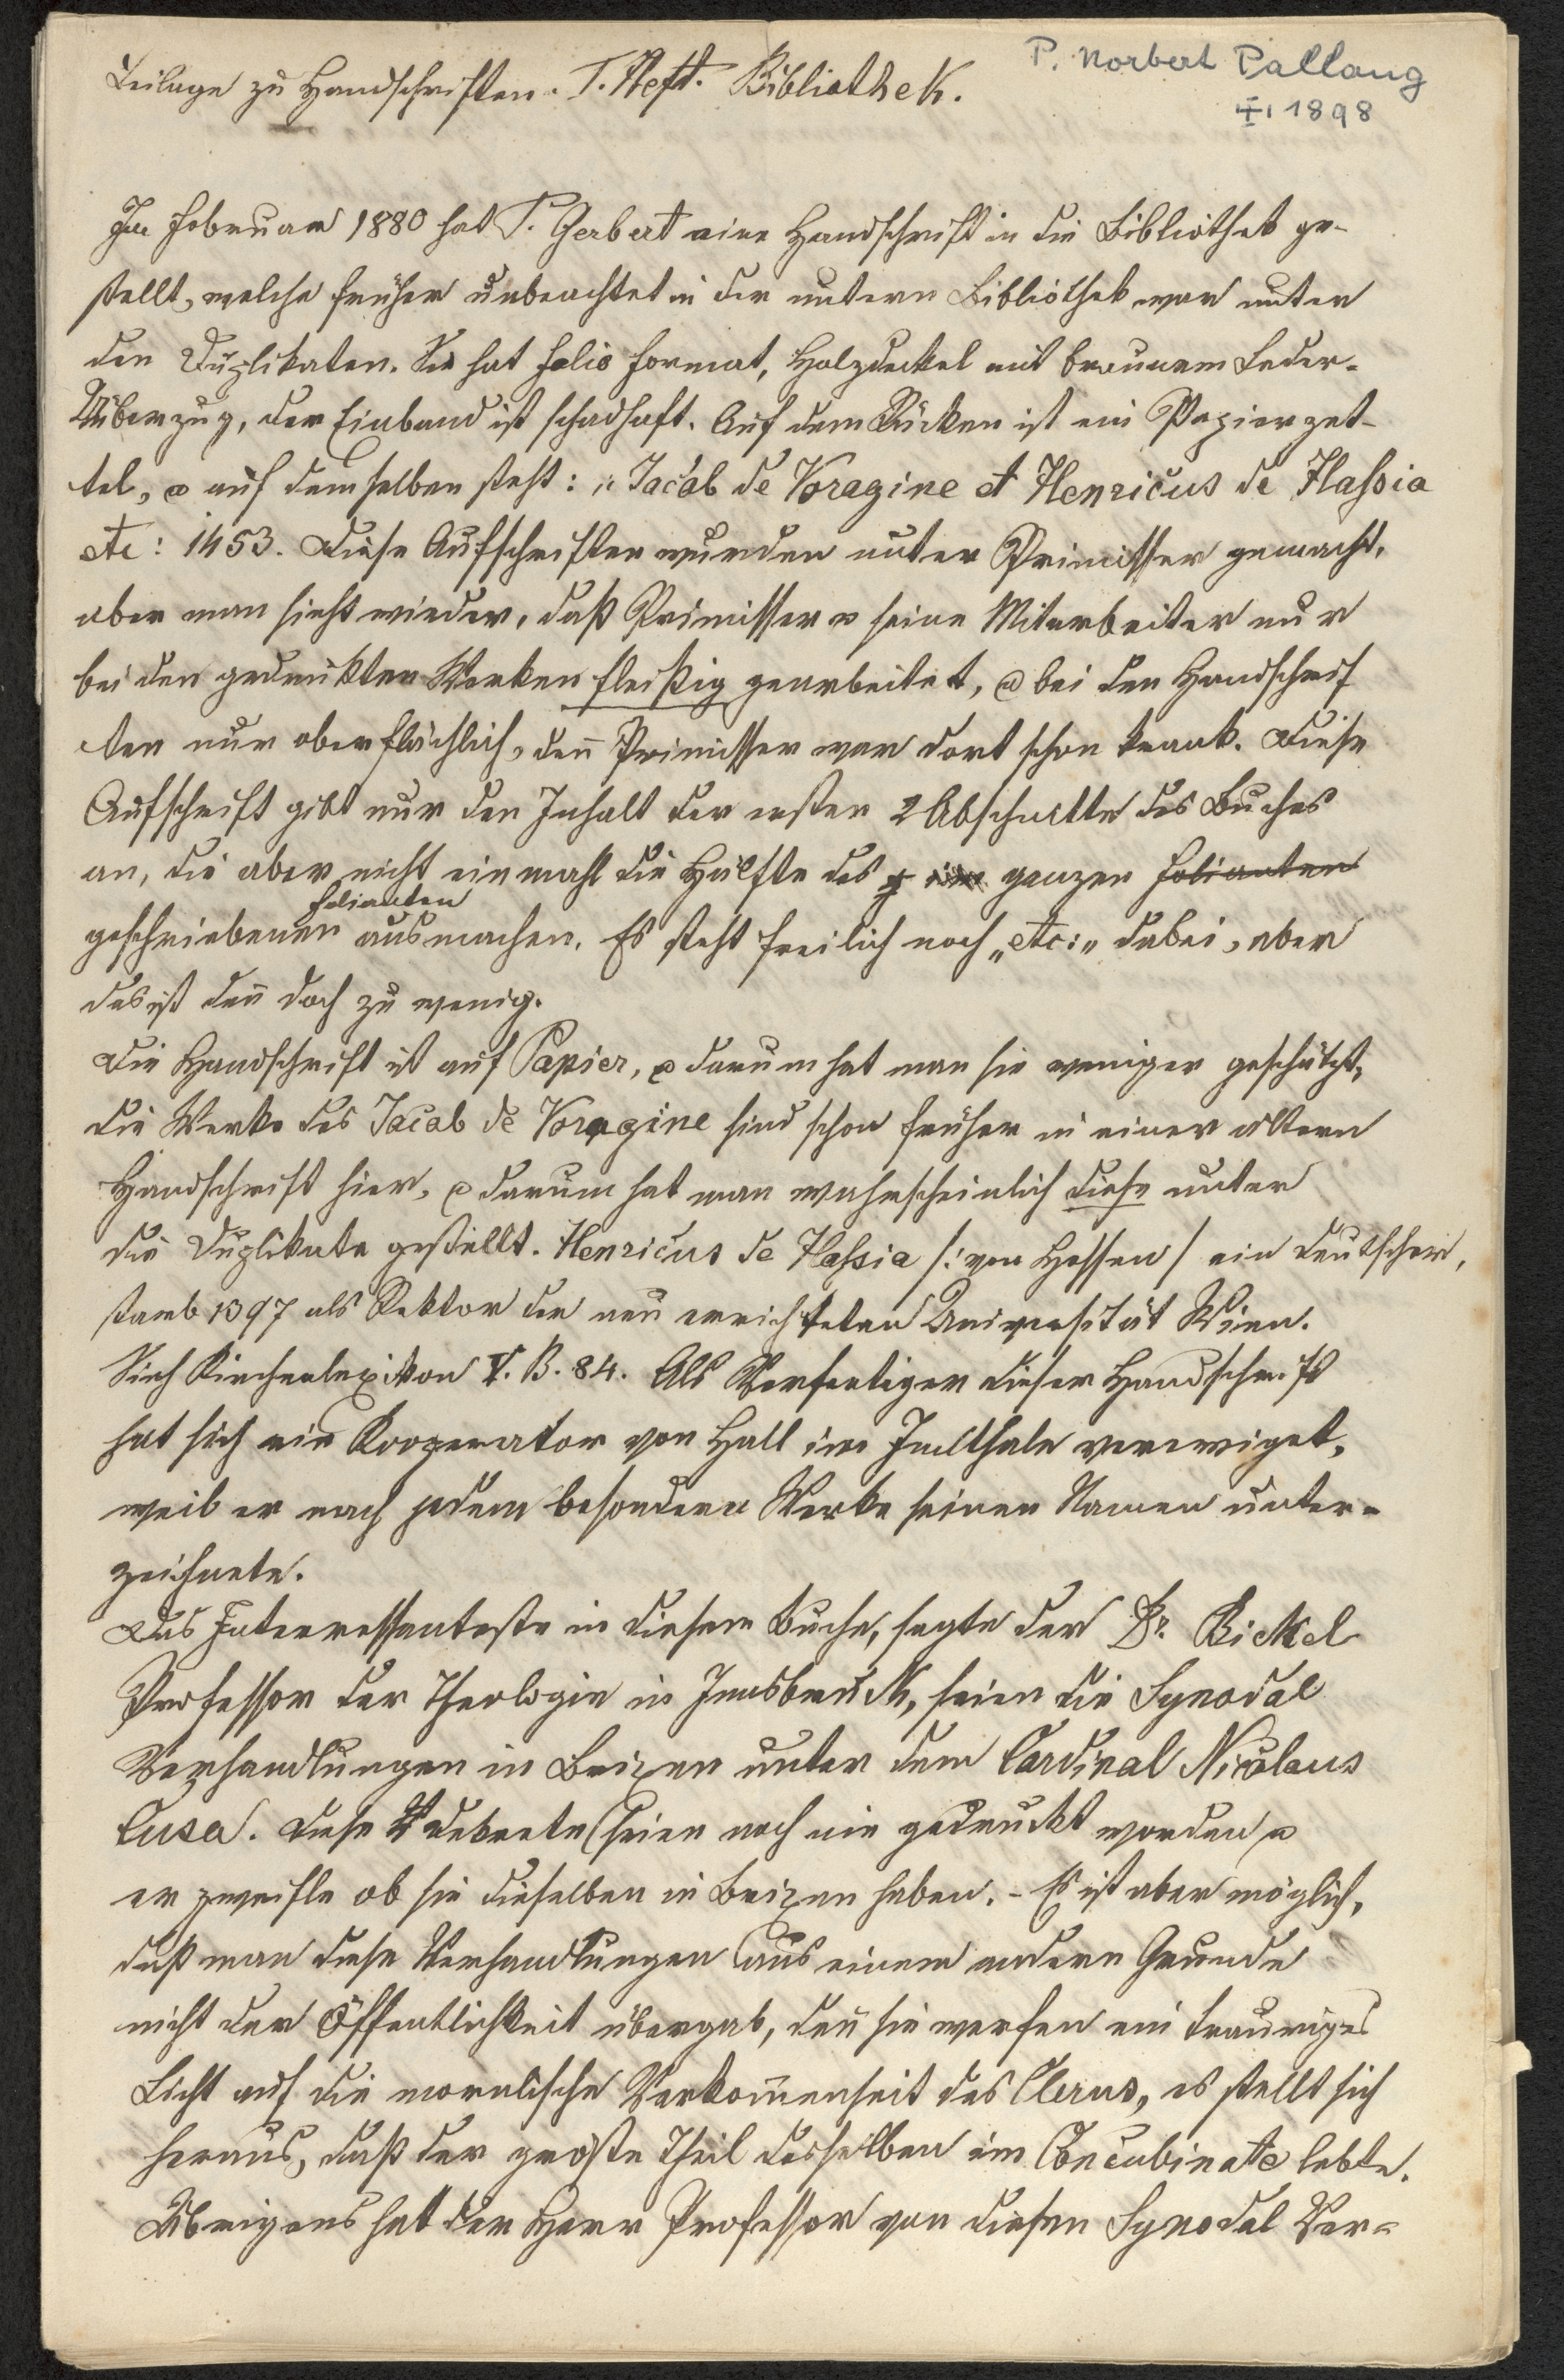 Beilage zu Handschriften. I. Heft. Bibliothek.
P. Norbert Pallang
† 1898
Im Februar 1880 hat P. Gerbert eine Handschrift in die Bibliothek ge-
stellt, welche früher unbeachtet in der untern Bibliothek war unter
den Duplikaten. Sie hat Folio Format, Holzdeckel mit braunem Leder-
Überzug, der Einband ist schadhaft. Auf dem Rücken ist ein Papierzet-
tel, u auf demselben steht: „Jacob de Voragine et Henricus de Hassia
etc: 1453. Diese Aufschriften wurden unter Primisser gemacht,
aber man sieht wieder, daß Primisser u seine Mitarbeiter nur
bei den gedruckten Werken fleißig gearbeitet, u bei den Handschrif
ten nur oberflächlich, deñ Primisser war dort schon krank. Diese
Aufschrift gibt nur den Inhalt der ersten 2 Abschnitte des Buches
an, die aber nicht einmahl die Hälfte des ganzen Folianten
Folianten
geschriebenen ausmachen. Es steht freilich noch „etc:„ dabei, aber
das ist deñ doch zu wenig.
Die Handschrift ist auf Papier, u darum hat man sie weniger geschätzt,
die Werke des Jacob de Voragine sind schon früher in einer ältern
Handschrift hier, u darum hat man wahrscheinlich diese unter
die Duplikate gestellt. Henricus de Hassia /: von Hessen / ein Deutscher,
starb 1397 als Rektor der neu errichteten Universität Wien.
Sieh Kirchenlexikon V. B. 84. Als Verfertiger dieser Handschrift
hat sich ein Kooperator von Hall im Innthale verewiget,
weil er nach jedem besondern Werke seinen Namen unter-
zeichnete.
Das Interressanteste in diesem Buche, sagte der Dr. Bickel
Professor der Theologie in Innsbruck, seien die Synodal
Verhandlungen in Brixen unter dem Cardinal Nicolaus
Cusa. Diese Dekrete seien noch nie gedruckt worden u
er zweifle ob sie dieselben in Brixen haben. - Es ist aber möglich,
daß man diese Verhandlungen aus einem andern Grunde
nicht der Öffentlichkeit übergab, deñ sie werfen ein trauriges
Licht auf die moralische Verkom̄enheit des Clerus, es stellt sich
heraus, daß der größte Theil desselben im Concubinate lebte.
Übrigens hat der Herr Professor von diesen Synodal Ver-